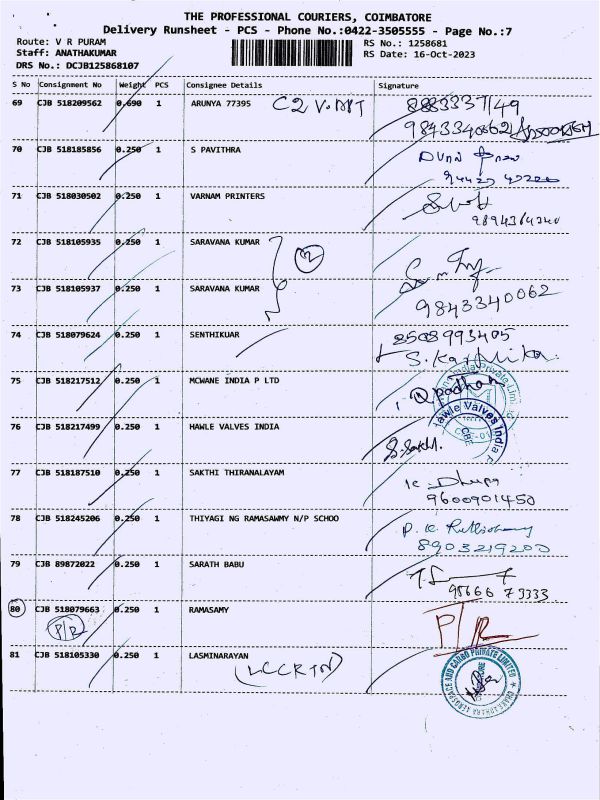 THE PROFESSIONAL COURIERS, COIMBATORE
Delivery Runsheet - PCS - Phone No.:0422-3505555 - Page No.:7
Route: V R PURAM RS No.: 1258681
Staff: ANATHAKUMAR RS Date: 16-Oct-2023
DRS No.: DCJB125868107
S No Consignment No Weight PCS Consignee Details Signature
69 CJB 518209562 0.690 1 ARUNYA 77395
9843340662
70 CJB 518185856 0.250 1 S PAVITHRA
71 CJB 518030502 0.250 1 VARNAM PRINTERS
72 CJB 518105935 0.250 1 SARAVANA KUMAR 2
73 CJB 518105937 0.250 1 SARAVANA KUMAR 9843340062
74 CJB 518079624 0.250 1 SENTHIKUAR 2508993405
S. Karthika.
75 CJB 518217512 0.250 1 MCWANE INDIA P LTD
76 CJB 518217499 0.250 1 HAWLE VALVES INDIA Hawle Valves India
77 CJB 518187510 0.250 1 SAKTHI THIRANALAYAM
9600901450
78 CJB 518245206 0.250 1 THIYAGI NG RAMASAWMY N/P SCHOO
8903219200
79 CJB 89872022 0.250 1 SARATH BABU
98666 73333
80 CJB 518079663 0.250 1 RAMASAMY P/R
P/R
81 CJB 518105330 0.250 1 LASMINARAYAN
AEROSPACE AND CARGO PRIVATE LIMITED